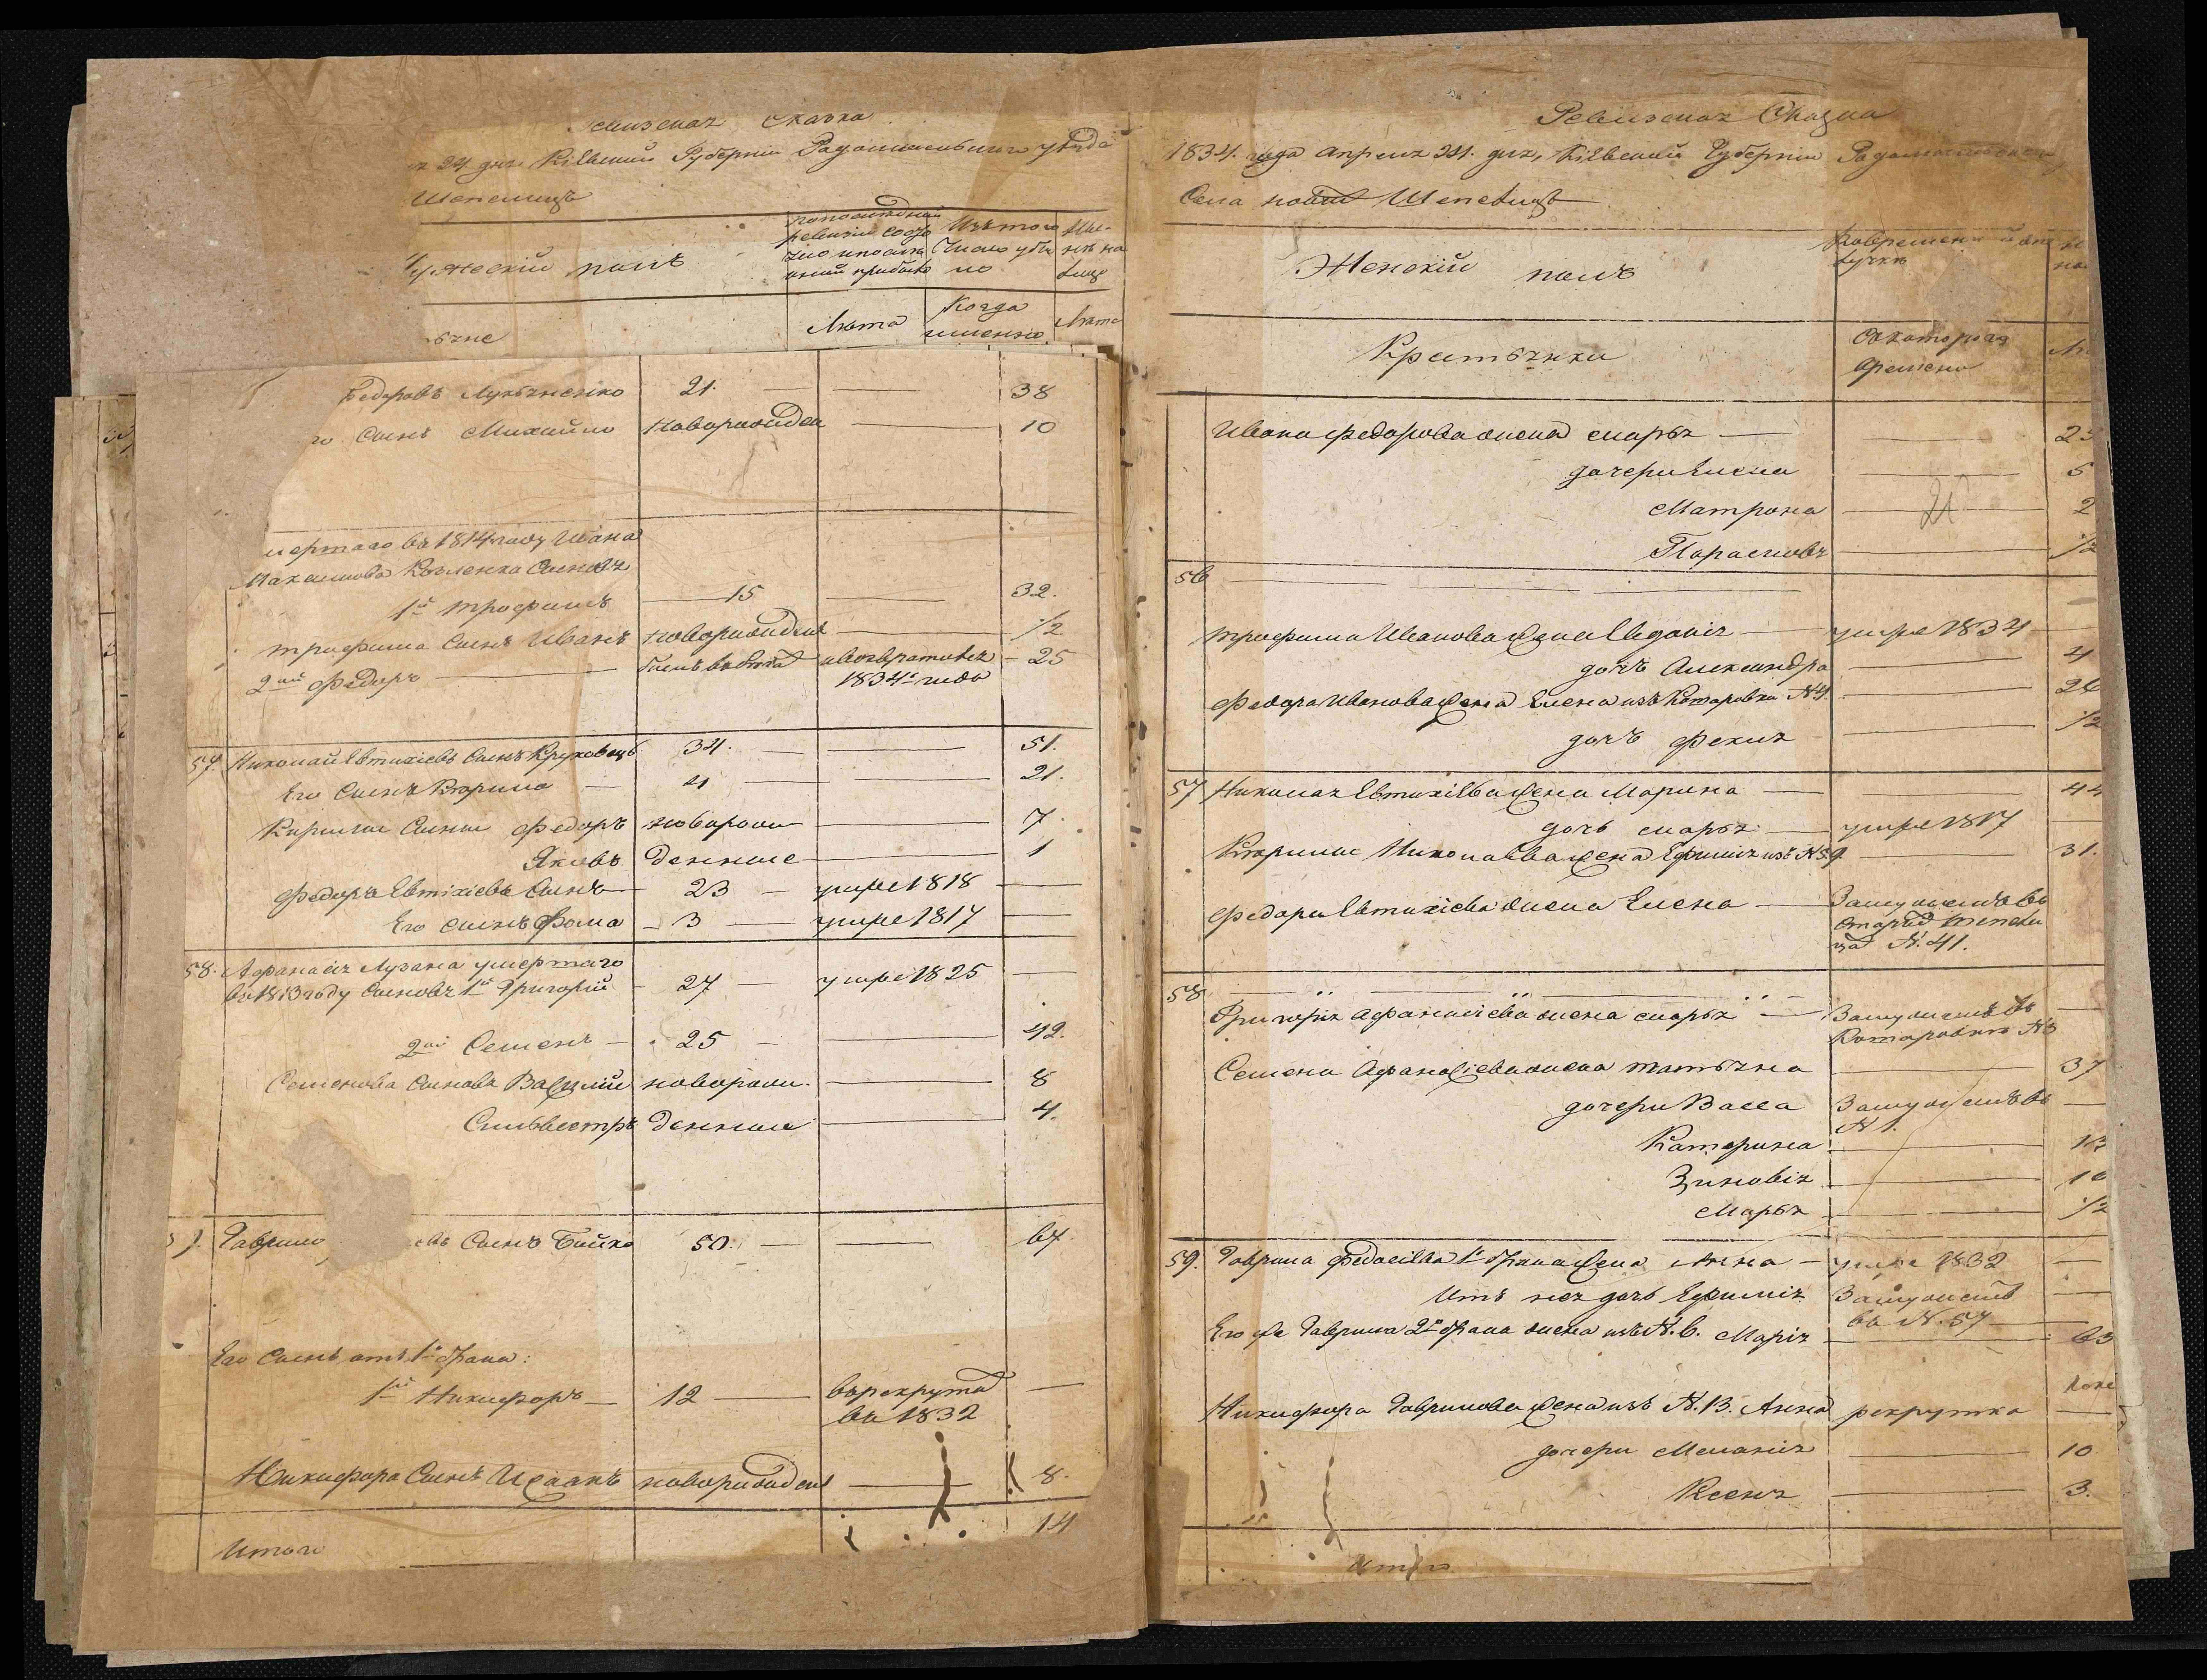 Сказка
24 дня Кіевской Губерніи Радомысльскаго уѣзда
Шепелицъ
полъ
по последней ревизіи состояло и после оной прибыло
Изъ того Число убыло
Ныне на лицо
Лѣта
Когда именно
Лѣта
Федоровъ Лукьяненко 21. 38
Сынъ Михайло Новорожден 10
въ 1814 году Ивана
Козленка Сыновья
1й Трофимъ 15 32.
Трофима Сынъ Иванъ новорожден 1/2
2ой Федоръ былъ въ возвратился 25
1834 года
57 Николай Евтихіевъ Сынъ Круковецъ 34. 51.
Его Сынъ Кирило 4 21.
Кирилы Сыны Федоръ новорож 7
Яковъ денные 1
Федоръ Евтихіевъ Сынъ 23 умре 1818
Его Сынъ Фома 3 умре 1817
58. Афанасія Лузана умертаго
въ 1813 году Сыновья 1й Григорій 27 умре 1825
2ой Семенъ 25 42.
Семенова Сыновья Василій новорож. 8
Сильвестръ денные 4.
Гаврило Сынъ Бойко 50. 67.
Его Сынъ отъ 1го брака:
1й Никифоръ 12 въ рекрута
въ 1832
Никифора Сынъ Исаакъ новорожден 8.
Итого 14
Ревизская Сказка
1834. года Апреля 24. дня, Кіевской Губерніи
Села Шепелицъ
Женскій полъ
Крестьянки
Съ котораго времени
Ивана Федорова жена Марья
дочери Елена 5
Матрона 2
Парасковья 1/2
56
Трофима Иванова жена Евдокія умре 1834
дочь Александра 4
Федора Иванова жена Елена изъ Котаровки №4.
дочь Фекла 1/2
57 Николая Евтихіева жена Марина 44
дочь Марья умре 1817
Кирилы Николаева жена Ефимія изъ №59 31.
Федора Евтихіева жена Елена Замужемъ въ
№. 41.
58
Григорія Афанасіева жена Марья Замужемъ въ
Котаровки №3
Семена Афанасіева жена Татьяна 37
дочери Васса Замужемъ въ
№ 1.
Катерина
Зиновія
Марья 1/2
59. Гаврила Федосіева 1го брака жена Анна умре 1832
Отъ нея дочь Ефимія Замужемъ
въ №. 57
Его же Гаврила 2го брака жена изъ №. 6. Марія 63
Никифора Гаврилова жена изъ №. 13. Анна рекрутка
дочери Меланія 10
Ксенія 3.
Итого